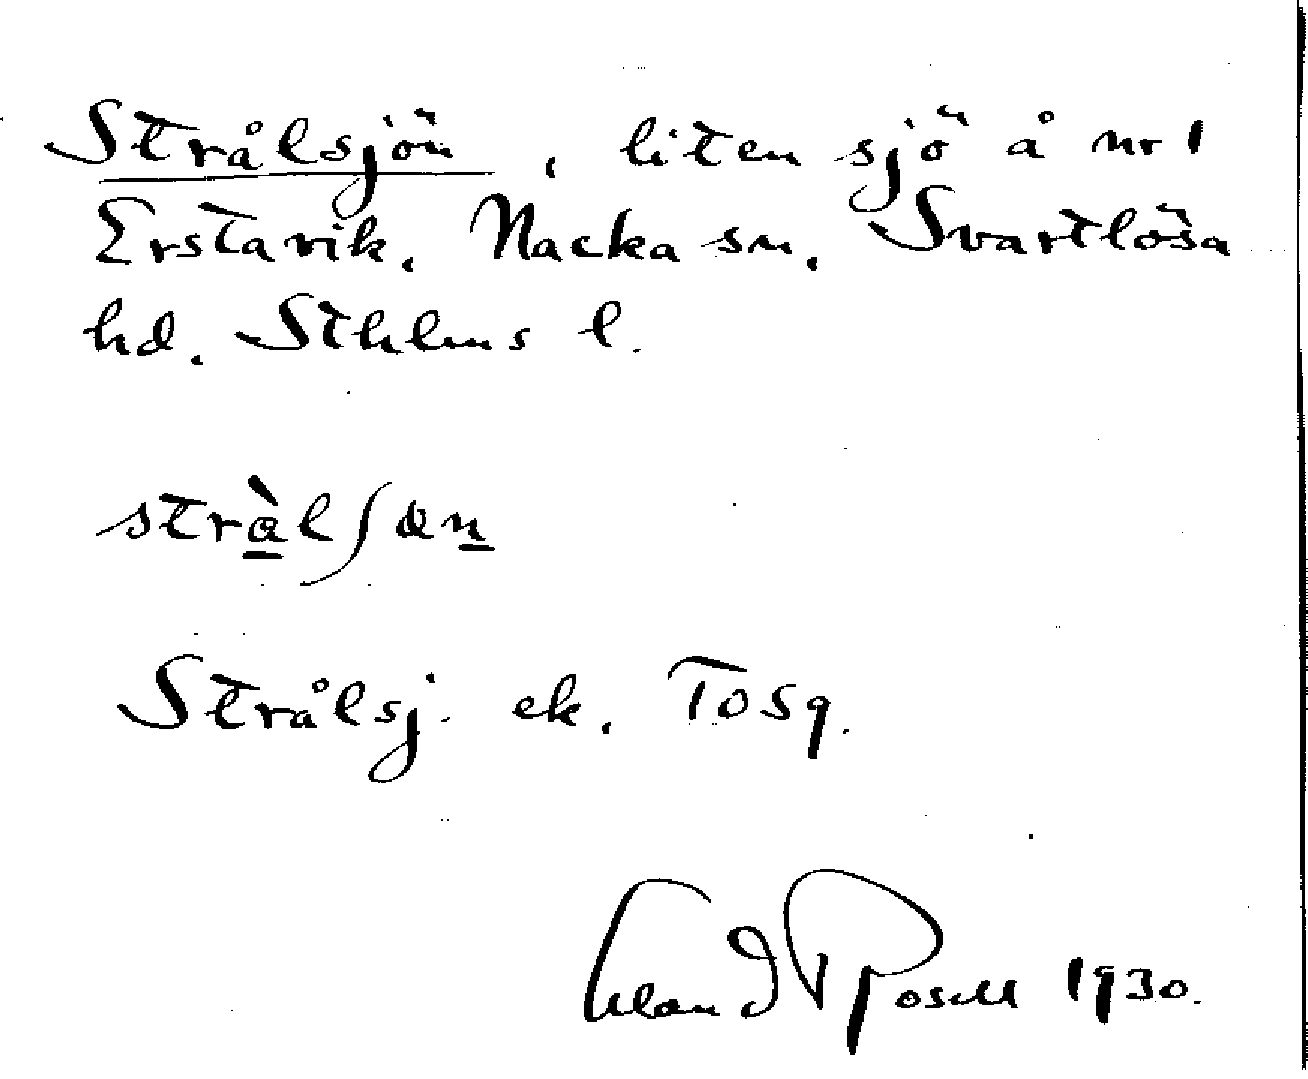 Strålsjön, liten sjö å nr 1
Erstavik. Nacka sn. Svartlösa
hd. Sthlms l.
stràlʃɑn
Strålsj. ek. Tosq.
Erland Rosell 1930.